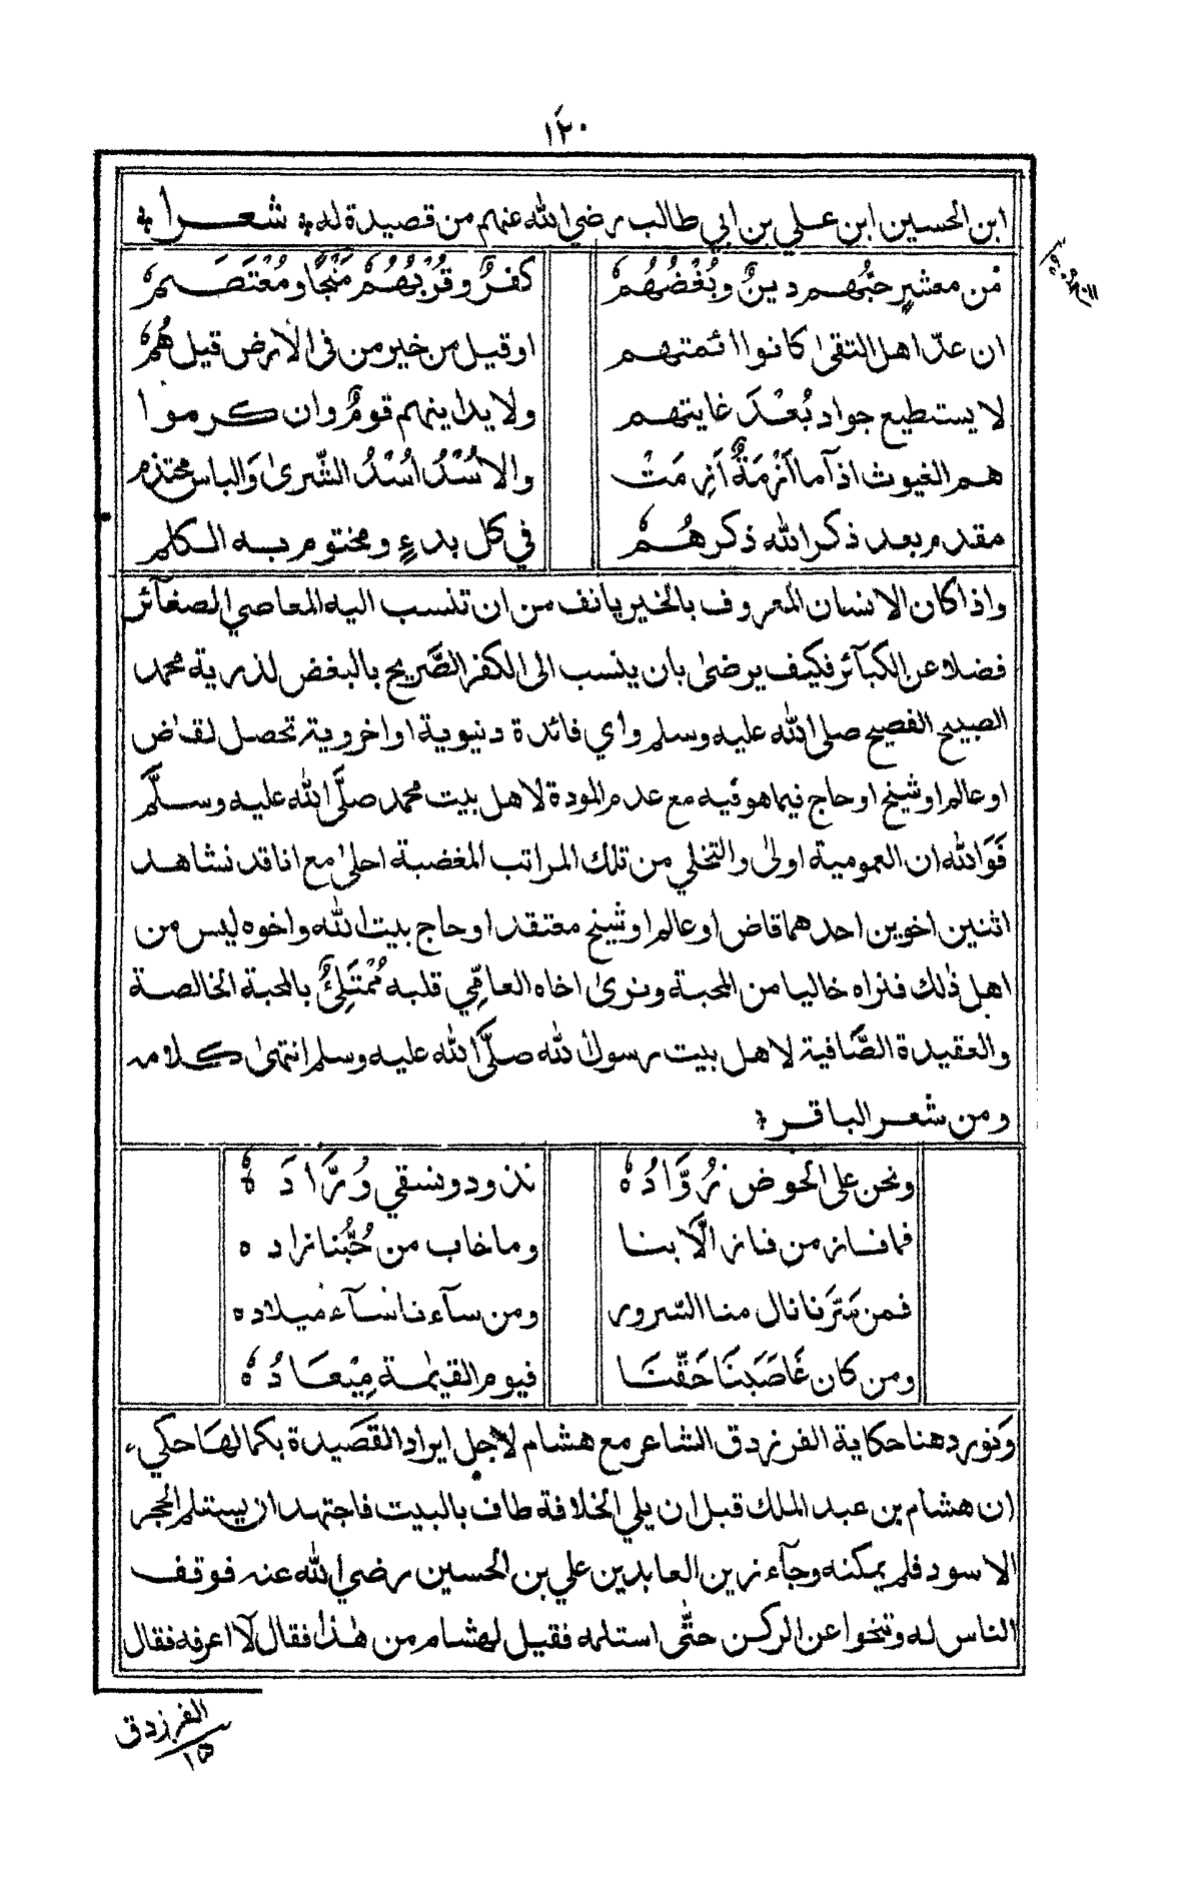 ١٢٠
ابن الحسين ابن علي بن ابي طالب رضي الله عنهم من قصيدة له شعرا
مُن معشرٍ حبّهم دينٌ وبُغْضُهُمْ كفرٌ وقُرْبُهُمْ مَنْجًا ومُعْتَصَمُ
ان عدّ اهل التقىٰ كانوا ائمتهم او قيل من خير من فى الارض قيل هُمُ
لا يستطيع جواد بُعْدَ غايتهم ولا يدانيهم قومٌ وان كرموا
هم الغيوث اذآ ما اَزْمَةٌ اَزِمَتْ والاُسْدُ اُسْدُ الشّرىٰ وَالباس محتذم
مقدم بعد ذكر الله ذكرهُمْ في كل بدءٍ ومختوم به الكلم
واذا كان الانسان المعروف بالخير يانف من ان تنسب اليه المعاصي الصغآئر
فضلا عن الكبآئر فكيف يرضىٰ بان ينسب الى الكفر الصَّريح بالبغض لذرية محمد
الصبيح الفصيح صلى الله عليه وسلم وأي فائدة دنيوية او اخروية تحصل لقاض
او عالم او شيخ او حاج فيما هو فيه مع عدم المودة لاهل بيت محمد صلَّى الله عليه وسلَّم
فَوَالله ان العمومية اولىٰ والتخلي من تلك المراتب المغضبة احلىٰ مع انا قد نشاهد
اثنين اخوين احدهما قاض او عالم او شيخ معتقد او حاج بيت الله واخوه ليس من
اهل ذٰلك فنراه خاليا من المحبة ونرىٰ اخاه العامّي قلبه مُمْتَلِئٌ بالمحبة الخالصة
والعقيدة الصَّافية لاهل بيت رسول الله صلَّى الله عليه وسلم انتهىٰ كلامه
ومن شعر الباقر
ونحن على الحوض زُوَّادُهْ نذود ونسقي وُرَّادَهْ
فما فاز من فاز الَّا بنا وما خاب من حُبُّنا زاده
فمن سَرَّنا نال منا السّرور ومن سآءنا سآء ميلاده
ومن كان غَاصَبَنَا حَقَّنَا فيوم القيٰمة مِيْعَادُهْ
وَنورد هنا حكاية الفرزدق الشاعر مع هشام لاجل ايراد القَصَيدة بكمالها حكي
ان هشام بن عبد الملك قبل ان يلي الخلافة طاف بالبيت فاجتهد ان يستلم الحجر
الاسود فلم يمكنه وجآء زين العابدين علي بن الحسين رضي الله عنه فوقف
الناس له وتنحوا عن الركن حتّٰى استلمه فقيل لهشام من هٰذا فقال لآ اعرفه فقال
الفرزدق
١٥